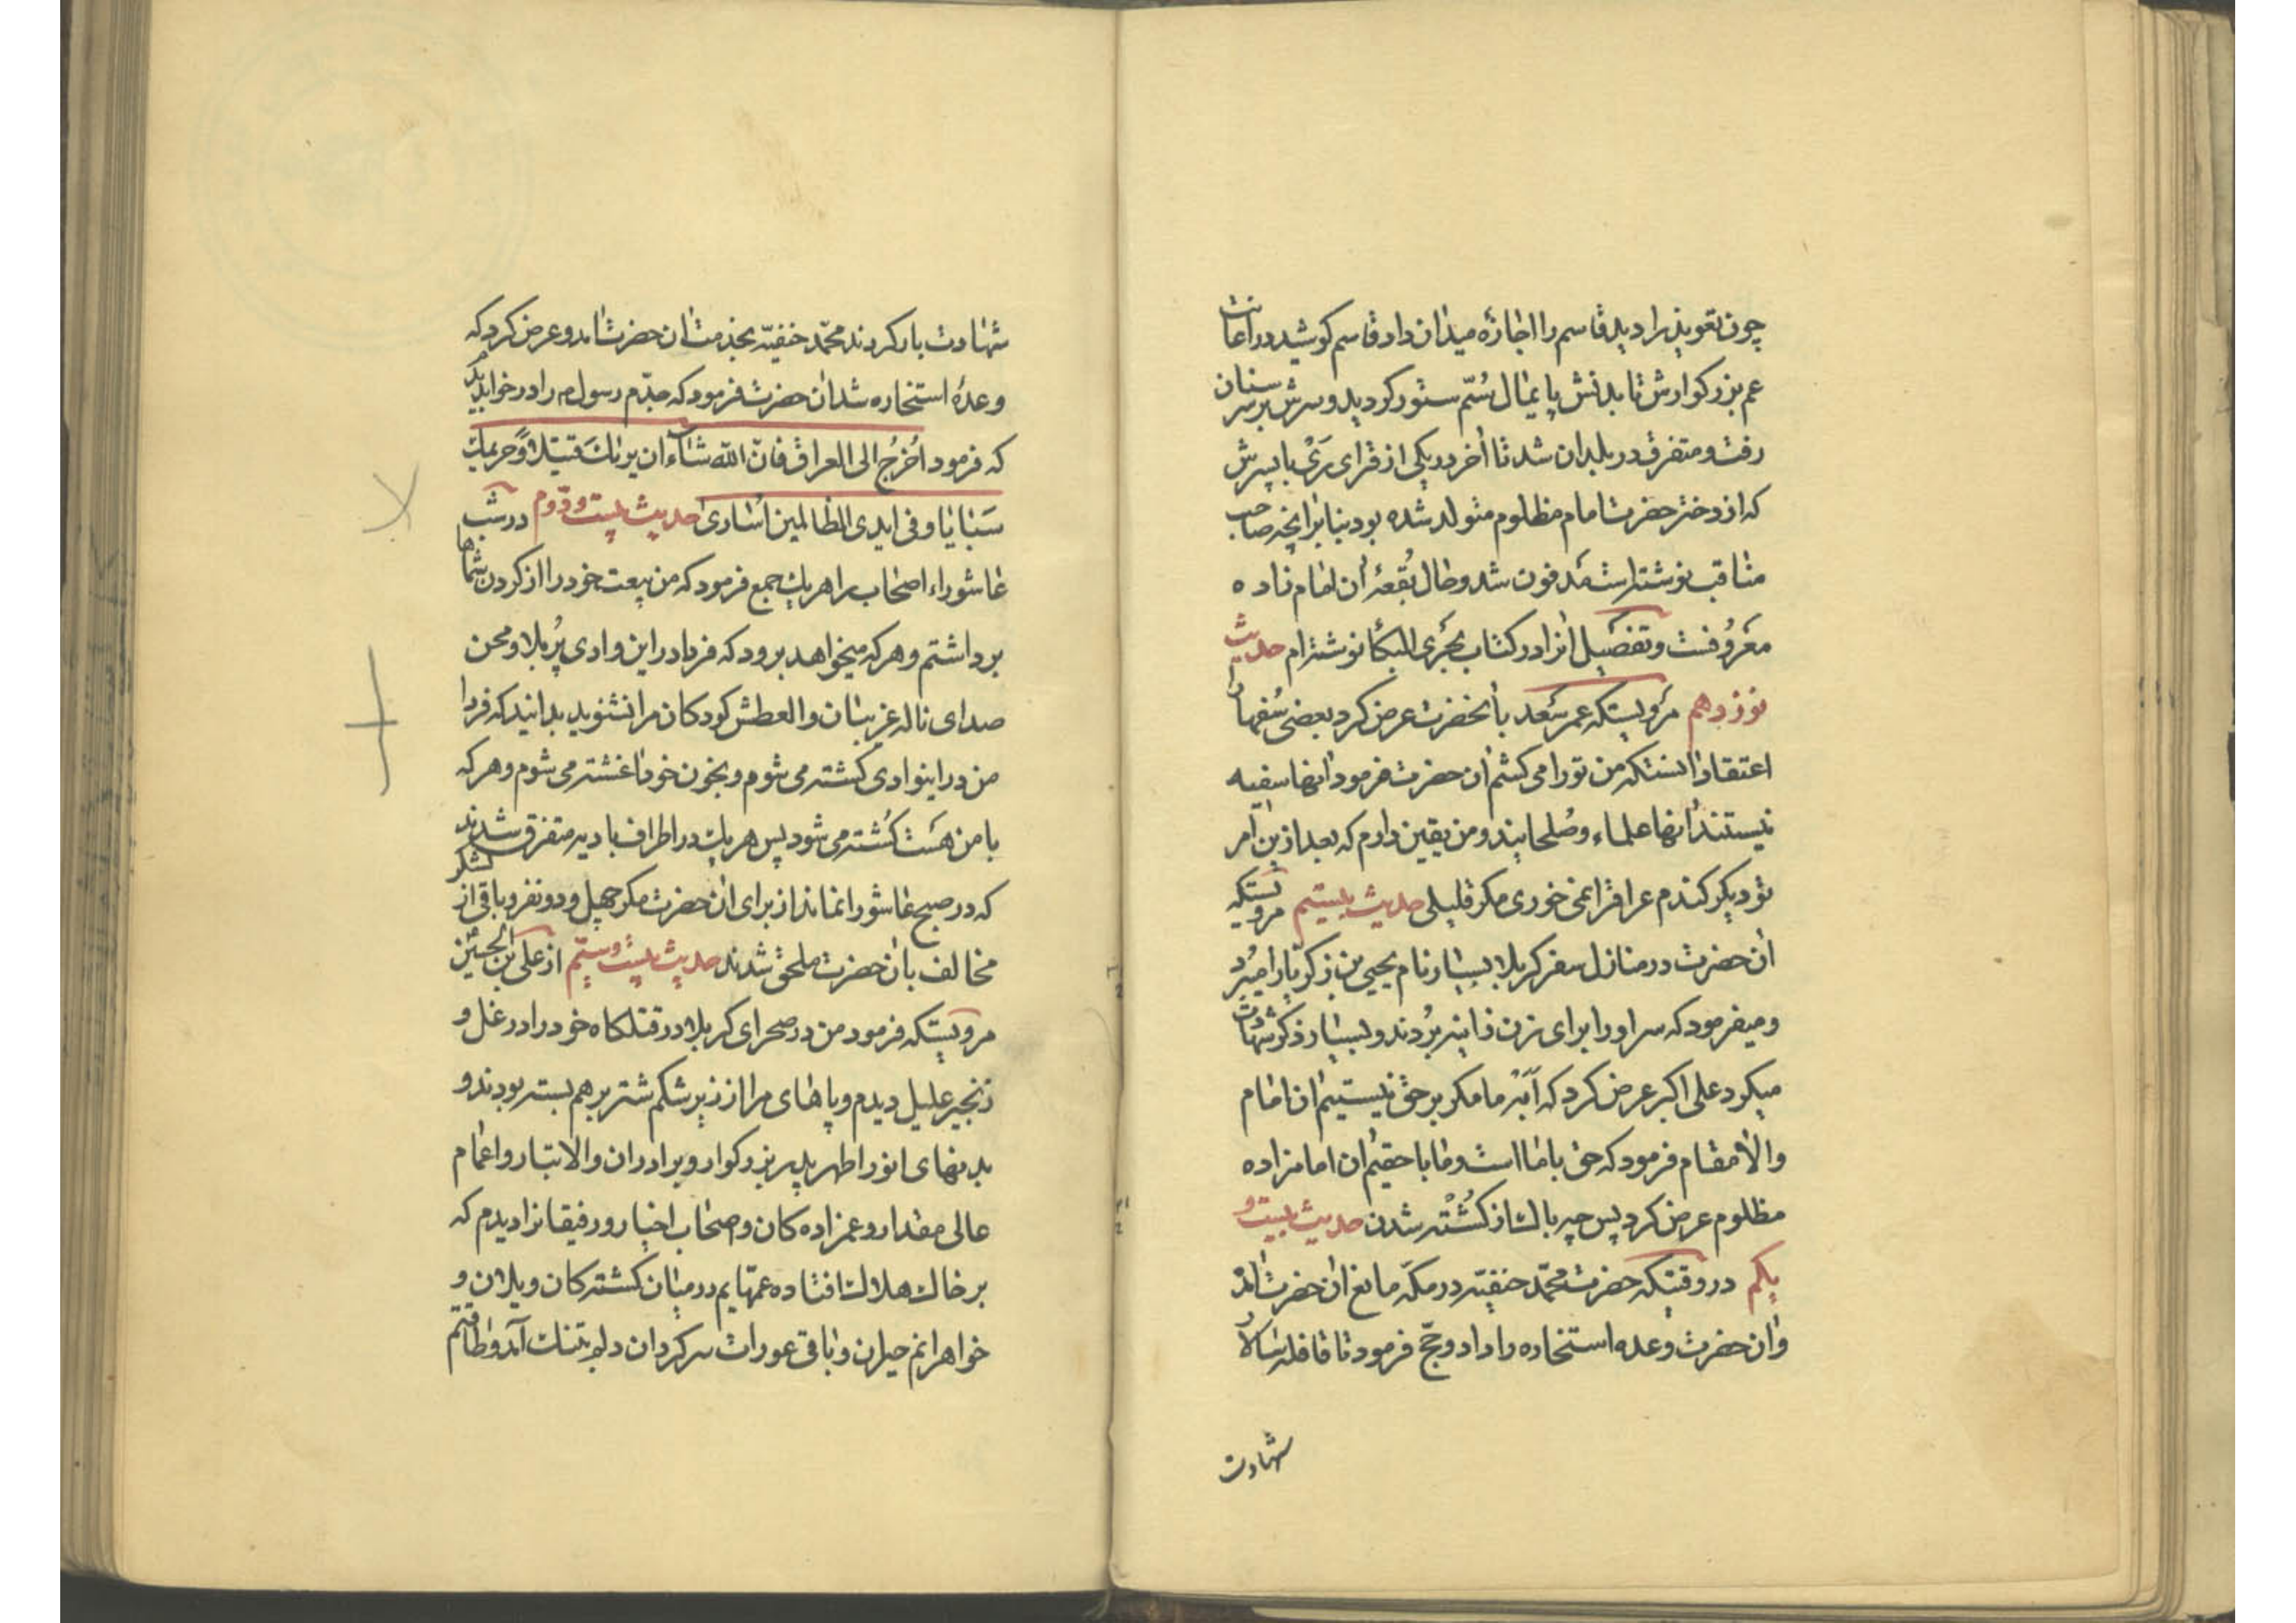 چون تعویذ را دید قاسم را اجازهٔ میدان داد قاسم کوشید در اعانت
عم بزرکوارش تا بدنش پایمال سُمّ ستور کردید و سرش بر سر سنان
رفت و متفرق در بلدان شد تا اٰخر در یکی از قرای رَیْ با پسرش
که از دختر حضرت امام مظلوم متولد شده بود بنا برانچه صاحب
مناقب نوشته است مَدفون شد و حال بُقعهٔ ان امام زاده
مَعرُوفست و تفصیل انرا در کتاب مجری البکا نوشته‌ام حدیث
نوزدهم مرویستکه عمر سَعد بانحضرت عرض کرد بعضی سُفهارا
اعتقاد انستکه من تورا می کشم ان حضرت فرمود انها سفیه
نیستند انها علماء و صُلحایند و من یقین دارم که بعد از این امر
تو دیکر کندم عراق را نمی خوری مکر قلیلی حدیث بیستم مرویستکه
ان حضرت در منازل سفر کربلا بسیار نام یحیی بن زکریا را میبرد
و میفرمود که سر او را برای زن زانیه بُردند و بسیار ذکر شهادت
میکرد علی اکبر عرض کرد که اَبَهْ ما مکر بر حق نیستیم ان امام
والا مقام فرمود که حق با ما است و ما با حقیم ان امامزاده
مظلوم عرض کرد پس چه باک از کُشْته شدن حدیث بیست و
یکم در وقتیکه حضرت محمّد حنفیّه در مکّه مانع ان حضرت امد
و ان حضرت وعده استخاره را داد و حجّ فرمود تا قافله سالار
شهادت
شهادت بار کردند محمّد حنفیّه بخدمت ان حضرت امد و عرض کرد که
وعدهٔ استخاره شد ان حضرت فرمود که جدّم رسول م را در خواب دیدم
که فرمود اُخرُج الی العراق فانّ اللّه شاء ان یریٰک قتیلاً و حریمک
سَبایا و فی ایدی الظالمین اُساریٰ حدیث بیست و دوّم در شب
عاشوراء اصحاب را هریک جمع فرمود که من بیعت خود را از کردن شماها
برداشتم و هرکه میخواهد برود که فردا در این وادی پُر بلا و محن
صدای ناله غریبان و العطش کودکان مرا نشنوید بدانید که فردا
من در اینوادی کشته می شوم و بخون خود اغشته می شوم و هرکه
با من هَست کُشته می شود پس هریک در اطراف بادیه متفرق شدند
که در صبح عاشورا نماند از برای ان حضرت مکر چهل و دو نفر و باقی از لشکر
مخالف بان حضرت ملحق شدند حدیث بیست و سیّم از علی ابن الحسین
مرویستکه فرمود من در صحرای کربلا در قتلکاه خود را در غل و
زنجیر علیل دیدم و پاهای مرا از زیر شکم شتر بر هم بسته بودند و
بدنهای انور اطهر پدر بزرکوار و برادران والا تبار و اعمام
عالی مقدار و عمزاده کان و اصحاب اخیار و رفیقانرا دیدم که
بر خاک هلاک افتاده عمّهایم در میان کشته کان ویلان و
خواهرانم حیران و باقی عورات سرکردان دلم بتنک آمد و طاقتم